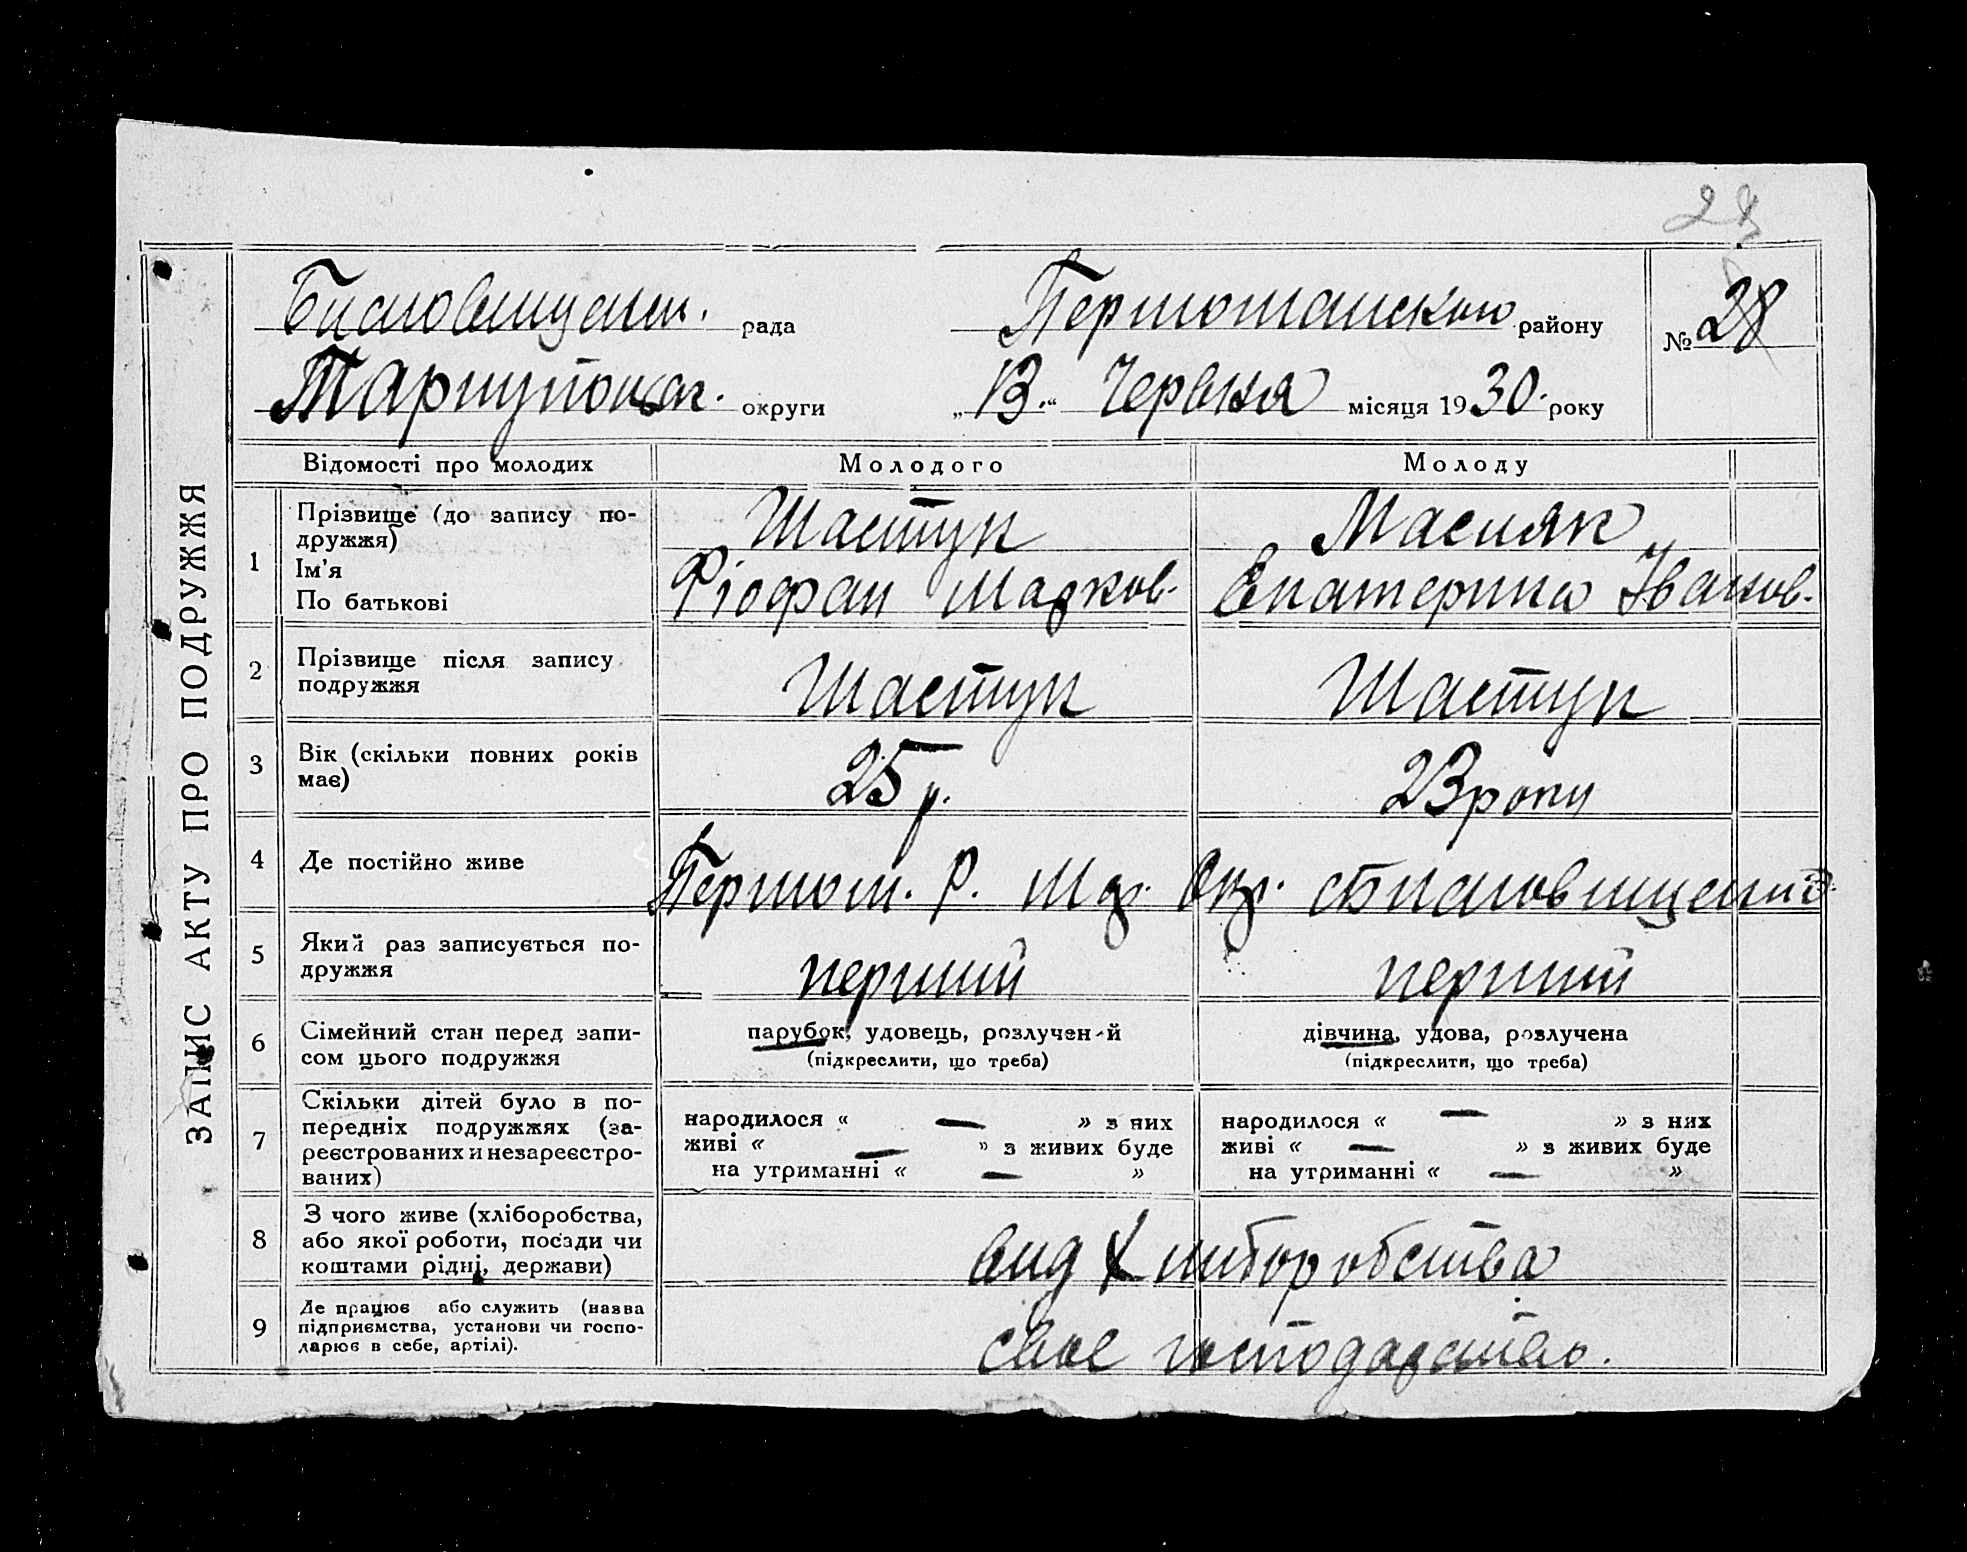 28
Биловещенс. рада Першотаиского району № 28
Мариупольск. округи „13.“ Червня місяця 1930. року
ЗАПИС АКТУ ПРО ПОДРУЖЖЯ
Відомості про молодих Молодого Молоду
1 Прізвище (до запису подружжя) Шастук Масляк
Ім'я
По батькові Фіофан Марков. Екатерина Іванов.
2 Прізвище після запису
подружжя Шастук Шастук
3 Вік (скільки повних років
має) 25 р. 23 роки
4 Де постійно живе Першот. Р. М Окр.
5 Який раз записується по-
дружжя перший перший
6 Сімейний стан перед запи-
сом цього подружжя
парубок, удовець, розлучен-й
(підкреслити, що треба)
дівчина, удова, розлучена
(підкреслити, що треба)
7 Скільки дітей було в по-
передніх подружжях (за-
реєстрованих и незареєстро-
ваних)
народилося « — » з них
живі « — » з живих буде
на утриманні « — »
народилося « — » з них
живі « — » з живих буде
на утриманні « — »
8 З чого живе (хліборобства,
або якої роботи, посади чи
коштами рідні, держави)
вид Хлиборобства
9 Де працює або служить (назва
підприємства, установи чи госпо-
дарює в себе, артілі).
свое господарство.